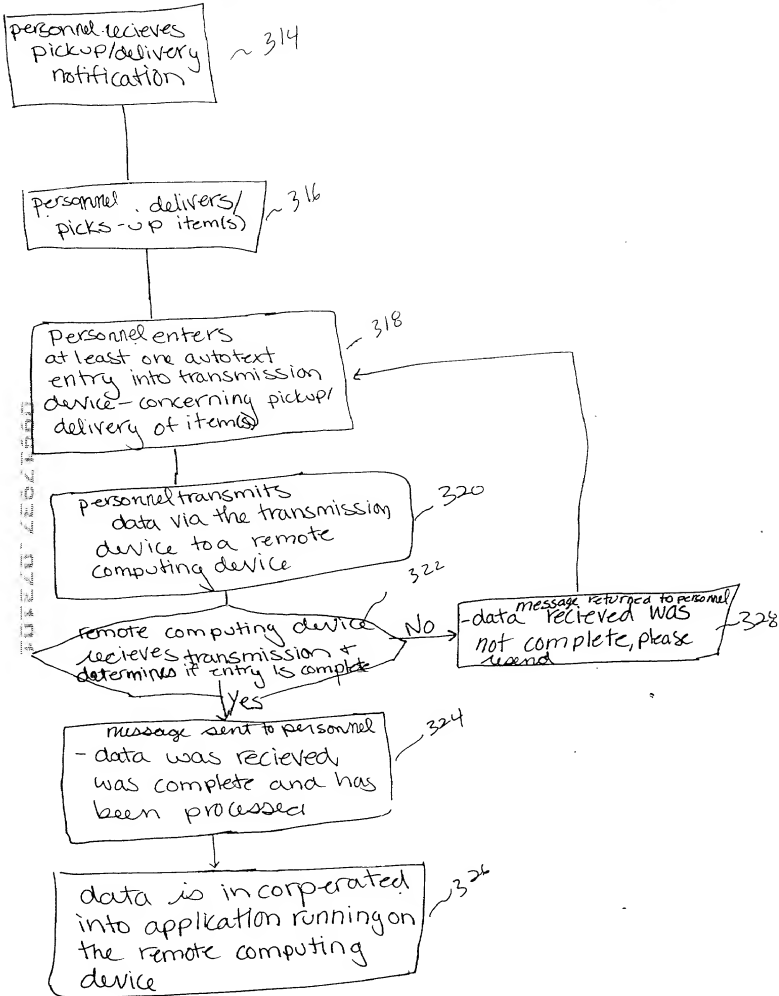 personnel recieves
pickup/delivery
notification
314
personnel . delivers/
picks-up item(s)
316
Personnel enters
at least one autotext
entry into transmission
device - concerning pickup/
delivery of item(s)
318
personnel transmits
data via the transmission
device to a remote
computing device
320
322
remote computing device
recieves transmission +
determines if entry is complete
No
message returned to personnel
-data recieved was
not complete, please
resend
328
Yes
message sent to personnel
- data was recieved
was complete and has
been processed
324
data is incorperated
into application running on
the remote computing
device
326